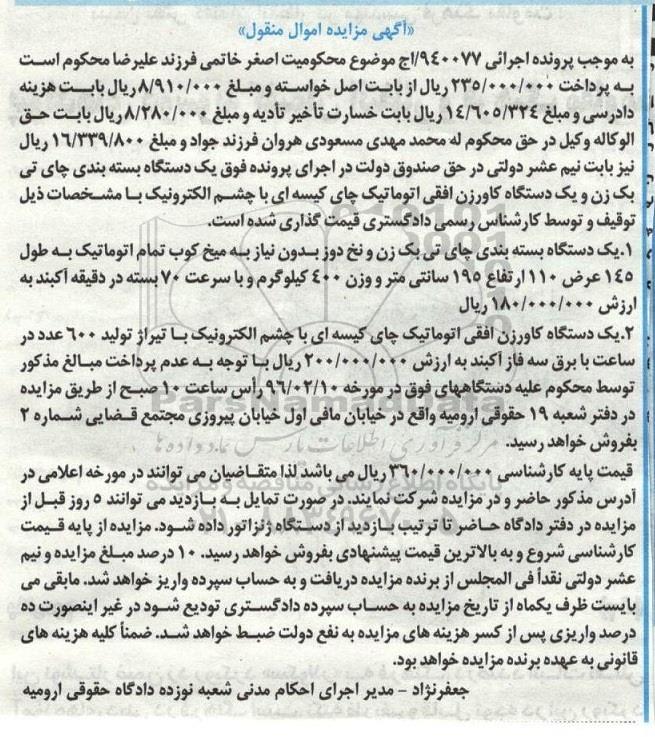 «آگهی مزایده اموال منقول»
به موجب پرونده اجرائی ۹۴۰۰۷۷/اج موضوع محکومیت اصغر خاتمی فرزند علیرضا محکوم است
به پرداخت ۲۳۵/۰۰۰/۰۰۰ ریال از بابت اصل خواسته و مبلغ ۸/۹۱۰/۰۰۰ ریال بابت هزینه
دادرسی و مبلغ ۱۴/۶۰۵/۳۲۴ ریال بابت خسارت تأخیر تأدیه و مبلغ ۸/۲۸۰/۰۰۰ ریال بابت حق
الوکاله وکیل در حق محکوم له محمد مهدی مسعودی هروان فرزند جواد و مبلغ ۱۶/۳۳۹/۸۰۰ ریال
نیز بابت نیم عشر دولتی در حق صندوق دولت در اجرای پرونده فوق یک دستگاه بسته بندی چای تی
بک زن و یک دستگاه کاورزن افقی اتوماتیک چای کیسه ای با چشم الکترونیک با مشخصات ذیل
توقیف و توسط کارشناس رسمی دادگستری قیمت گذاری شده است.
۱.یک دستگاه بسته بندی چای تی بک زن و نخ دوز بدون نیاز به میخ کوب تمام اتوماتیک به طول
۱۴۵ عرض ۱۱۰ ارتفاع ۱۹۵ سانتی متر و وزن ۴۰۰ کیلوگرم و با سرعت ۷۰ بسته در دقیقه آکبند به
ارزش ۱۸۰/۰۰۰/۰۰۰ ریال
۲.یک دستگاه کاورزن افقی اتوماتیک چای کیسه ای با چشم الکترونیک با تیراژ تولید ۶۰۰ عدد در
ساعت با برق سه فاز آکبند به ارزش ۲۰۰/۰۰۰/۰۰۰ ریال با توجه به عدم پرداخت مبالغ مذکور
توسط محکوم علیه دستگاههای فوق در مورخه ۹۶/۰۲/۱۰ رأس ساعت ۱۰ صبح از طریق مزایده
در دفتر شعبه ۱۹ حقوقی ارومیه واقع در خیابان مافی اول خیابان پیروزی مجتمع قضایی شماره ۲
بفروش خواهد رسید.
قیمت پایه کارشناسی ۳۶۰/۰۰۰/۰۰۰ ریال می باشد لذا متقاضیان می توانند در مورخه اعلامی در
آدرس مذکور حاضر و در مزایده شرکت نمایند. در صورت تمایل به بازدید می توانند ۵ روز قبل از
مزایده در دفتر دادگاه حاضر تا ترتیب بازدید از دستگاه ژنزاتور داده شود. مزایده از پایه قیمت
کارشناسی شروع و به بالاترین قیمت پیشنهادی بفروش خواهد رسید. ۱۰ درصد مبلغ مزایده و نیم
عشر دولتی نقداً فی المجلس از برنده مزایده دریافت و به حساب سپرده واریز خواهد شد. مابقی می
بایست ظرف یکماه از تاریخ مزایده به حساب سپرده دادگستری تودیع شود در غیر اینصورت ده
درصد واریزی پس از کسر هزینه های مزایده به نفع دولت ضبط خواهد شد. ضمناً کلیه هزینه های
قانونی به عهده برنده مزایده خواهد بود.
جعفرنژاد - مدیر اجرای احکام مدنی شعبه نوزده دادگاه حقوقی ارومیه